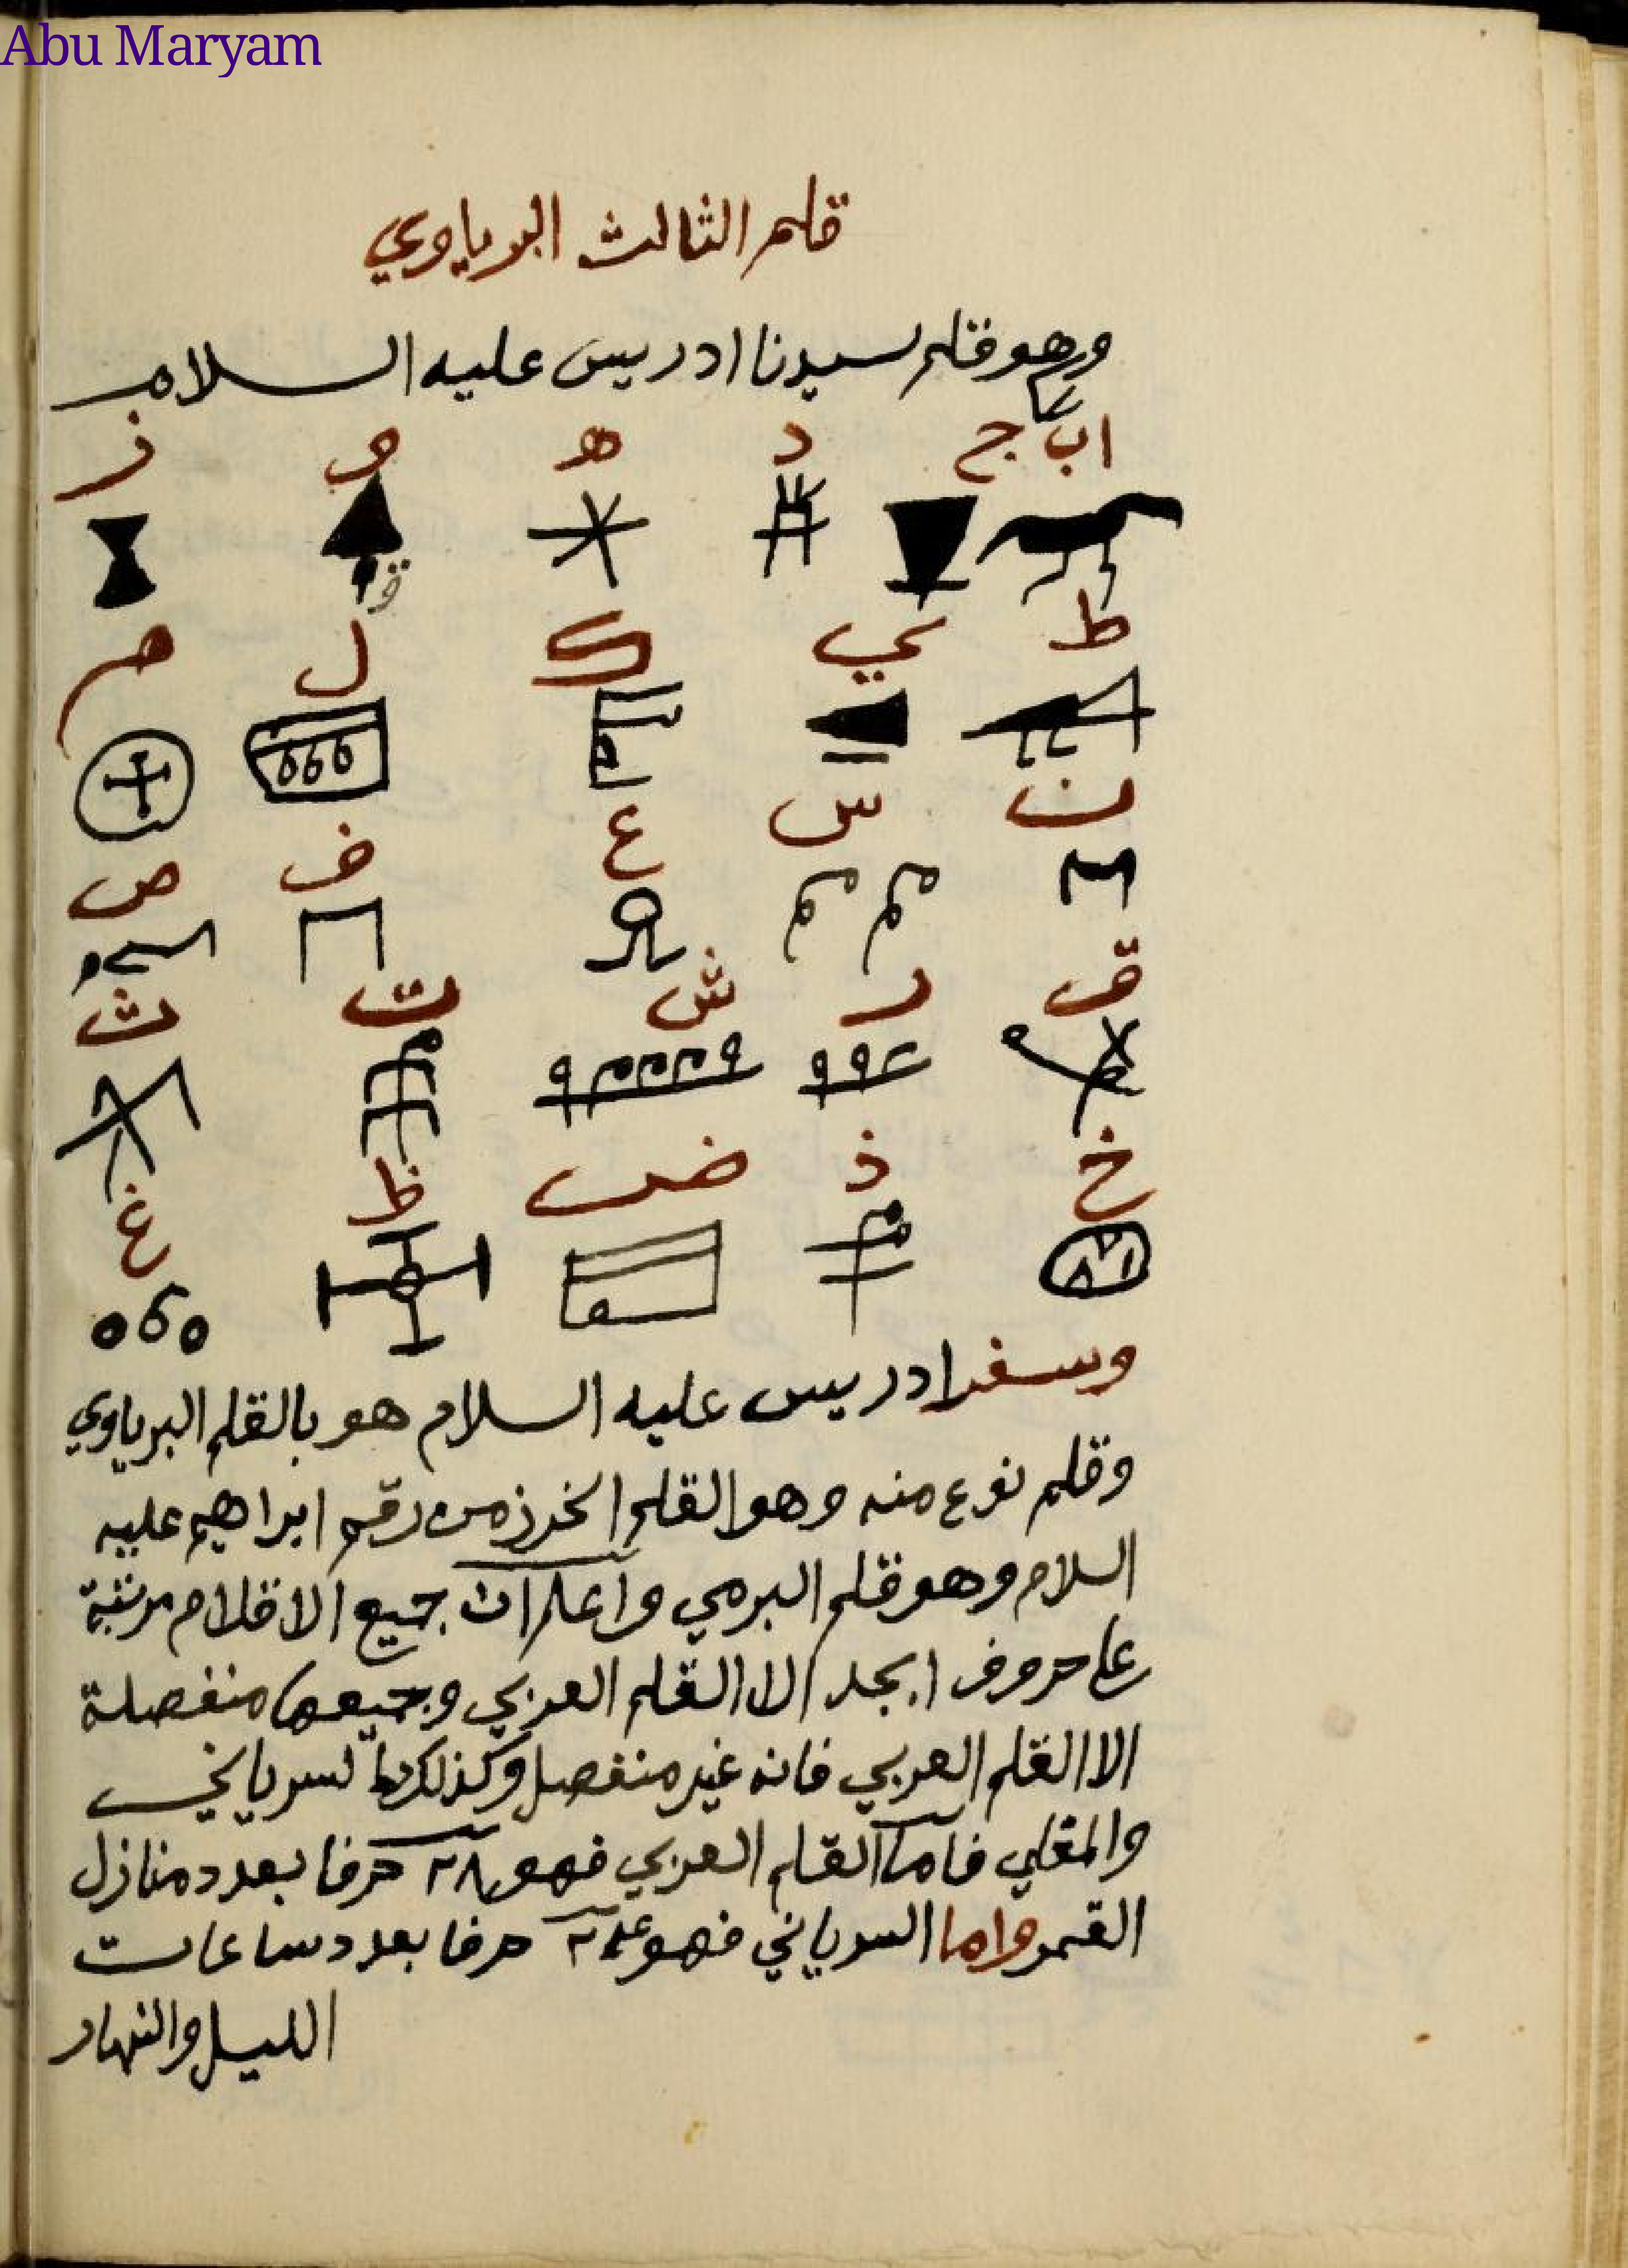 Abu Maryam
قلم الثالث البرباوي
وهو قلم لسيدنا ادريس عليه السلام
ا ب ج د ه و ز
ط ي ك ل م
ن س ع ف ص
ق ر ش ت ث
خ ذ ض ظ غ
وسفر ادريس عليه السلام هو بالقلم البرباوي
وقلم نوع منه وهو القلم الخرزمن رقم ابراهيم عليه
السلام وهو قلم البرمي واعلم ان جميع الاقلام مرتبة
على حروف ابجد الا القلم العربي وجميعها منفصلة
الا القلم العربي فانه غير منفصل وكذلك السرياني
والمغلي فاما القلم العربي فهو ٢٨ حرفا بعدد منازل
القمر واما السرياني فهو حرفا بعدد ساعات
الليل والنهار